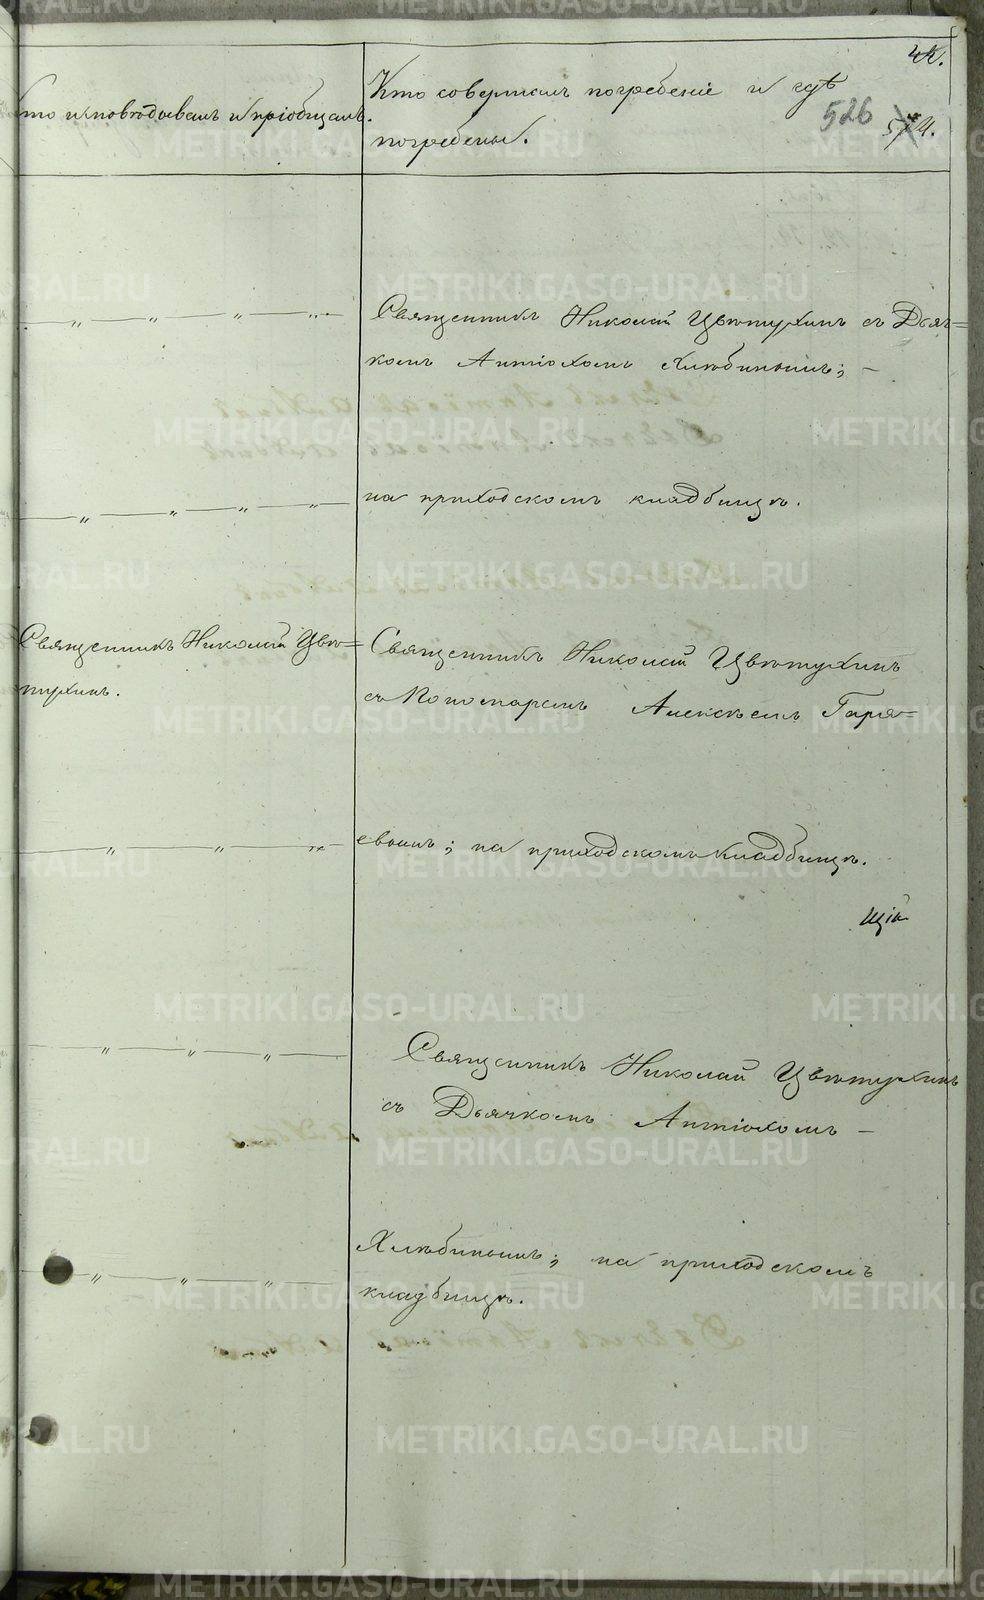 42.
Кто исповѣдывалъ и пріобщалъ.
Кто совершалъ погребеніе и гдѣ
погребены.
526
574.
Священникъ Николай Цвѣтухинъ съ Дьяч=
комъ Антіохомъ Хлѣбинымъ; —
на приходскомъ кладбищѣ.
Священникъ Николай Цвѣ=
тухинъ.
Священникъ Николай Цвѣтухинъ
съ Пономаремъ Алексѣемъ Горя=
евымъ; на приходскомъ кладбищѣ.
Священникъ Николай Цвѣтухинъ
съ Дьячкомъ Антіохомъ —
Хлѣбинымъ; на приходскомъ
кладбищѣ.
METRIKI.GASO-URAL.RU